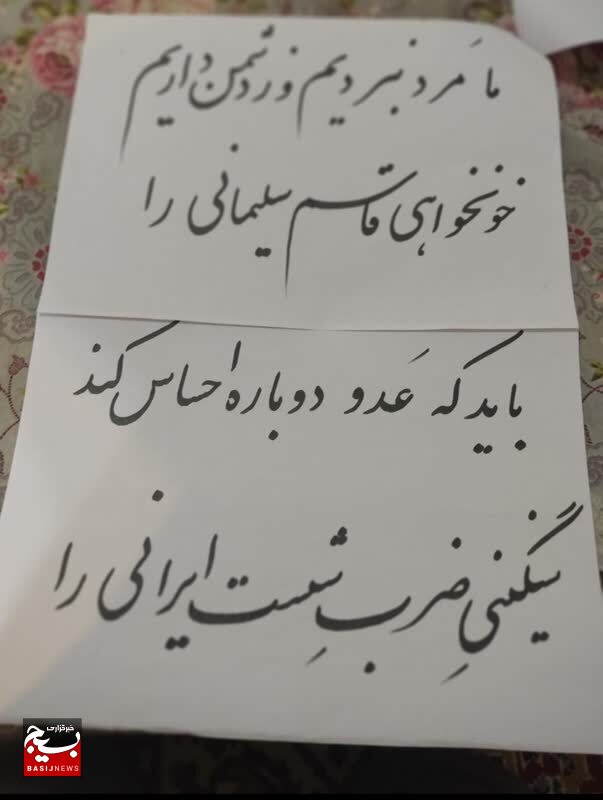 ما مَرد نبردیم و ز دشمن داریم
خونخواهی قاسم سلیمانی را
باید که عَدو دوباره احساس کند
سنگینیِ ضرب شِست ایرانی را
خبرگزاری
بسیج
BASIJNEWS